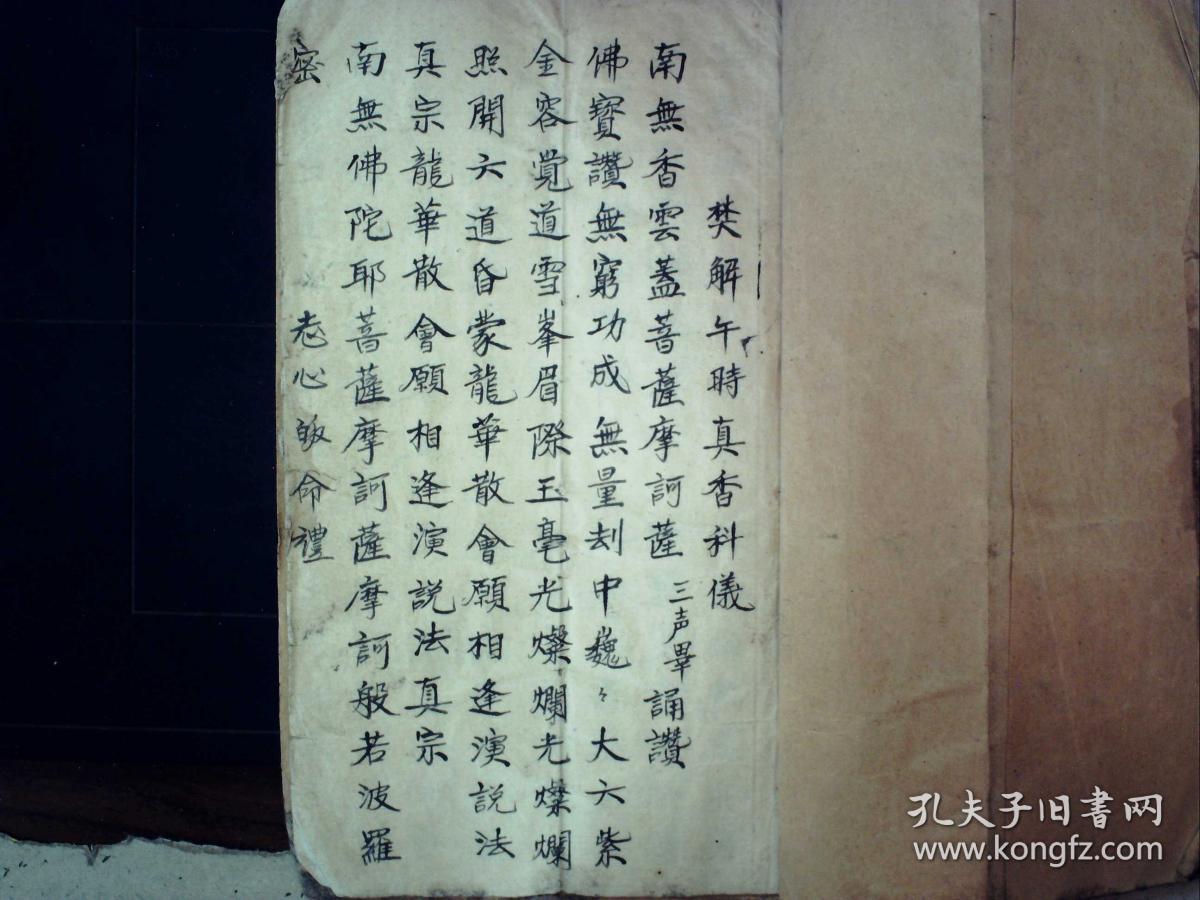 焚解午時真香科儀
南無香雲蓋菩薩摩訶薩 三声畢 誦讚
佛寳讚無窮功成無量刼中巍々大六紫
金容覺道雪峯眉際玉毫光燦爛光燦爛
照開六道昏蒙龍華散會願相逢演說法
真宗龍華散會願相逢演說法真宗
南無佛陀耶菩薩摩訶薩摩訶般若波羅
密 志心皈命禮
孔夫子旧书网
www.kongfz.com